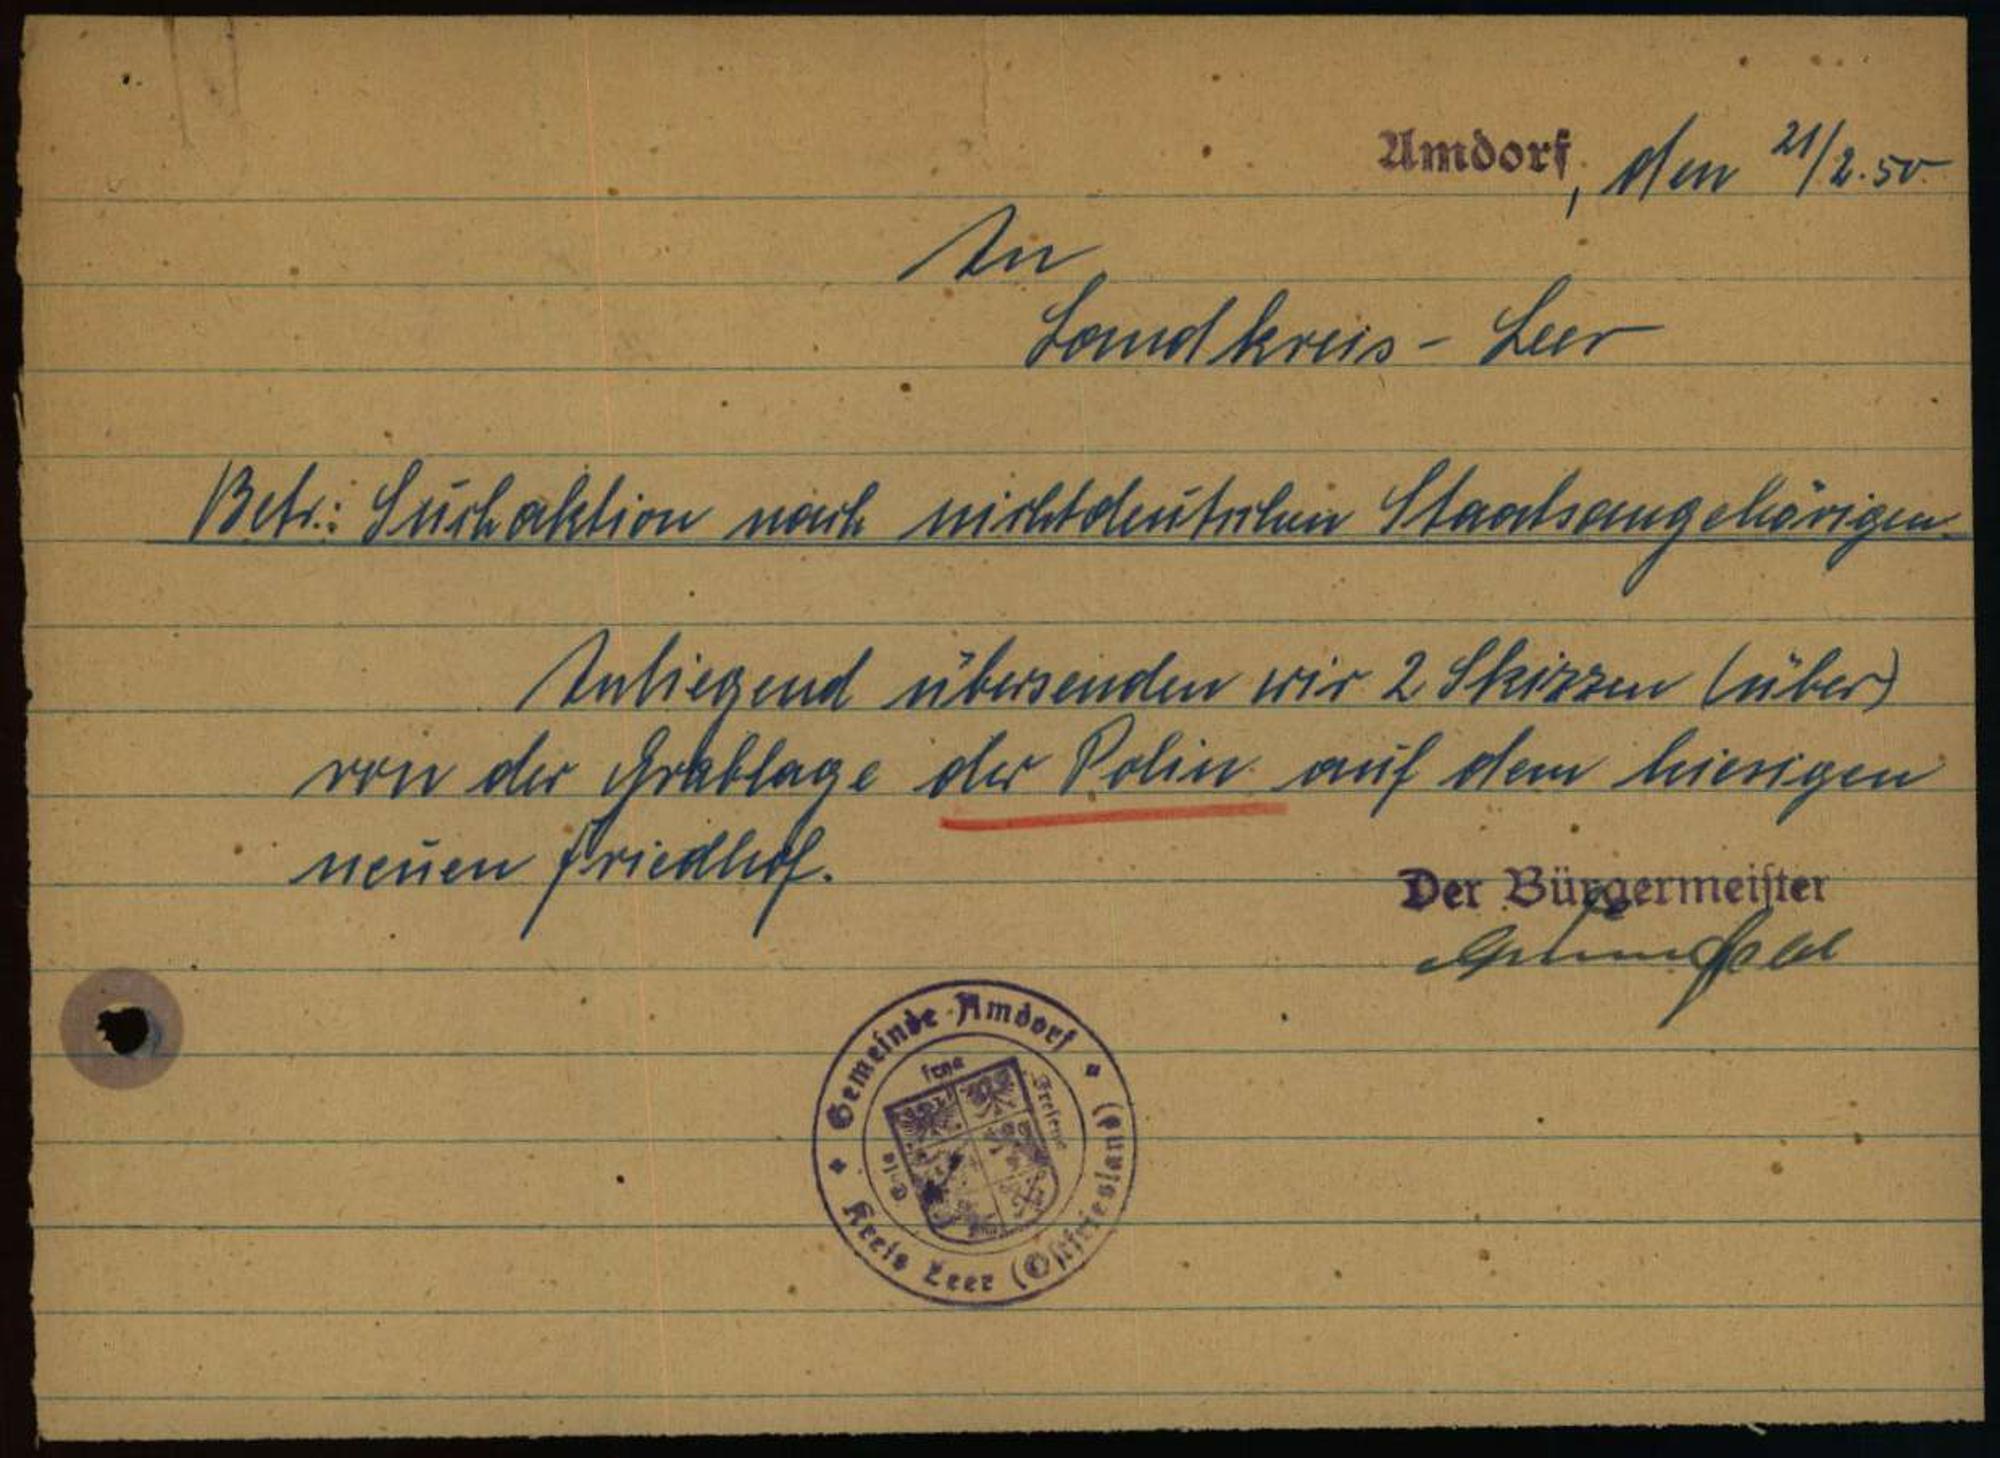 Amdorf, den 21/2.50
An
Landkreis - Leer
Betr.: Suchaktion nach nichtdeutschen Staatsangehörigen.
Anliegend übersenden wir 2 Skizzen (über)
von der Grablage der Polin auf dem hiesigen
neuen Friedhof.
Der Bürgermeister
Gemeinde Amdorf
Kreis Leer (Ostfriesland)
Eala
frya
Fresena